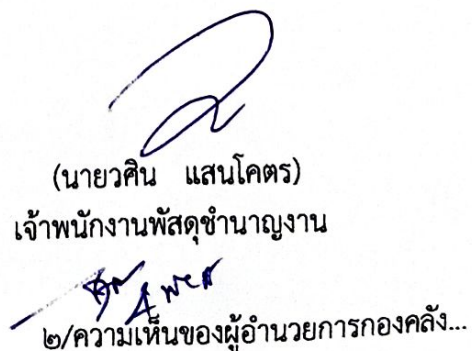 (นายวศิน แสนโคตร)
เจ้าพนักงานพัสดุชำนาญงาน
๒/ความเห็นของผู้อำนวยการกองคลัง...